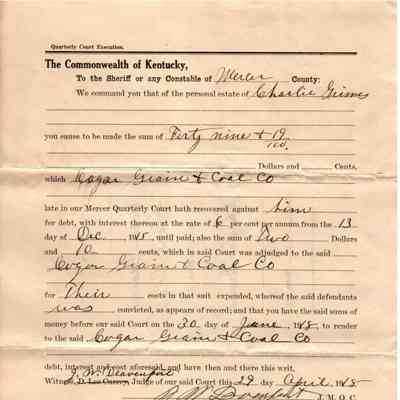 Quarterly Court Execution.
The Commonwealth of Kentucky,
To the Sheriff or any Constable of Mercer County:
We command you that of the personal estate of Charlie Grimes
you cause to be made the sum of Forty nine & 19/100.
Dollars and Cents,
which Cogar Grain & Coal Co
late in our Mercer Quarterly Court hath recovered against him
for debt, with interest thereon at the rate of 6 per cent per annum from the 13
day of Dec, until paid; also the sum of Two Dollars
and 10 cents, which in said Court was adjudged to the said
Cogar Grain & Coal Co
for Their costs in that suit expended, whereof the said defendants
was convicted, as appears of record; and that you have the said sums
of money before our said Court on the 30 day of June, to render
to the said Cogar Grain & Coal Co
debt, interest and cost aforesaid, and have then and there this writ.
J. W. Deavenport
Witness, D. Lee Currey, Judge of our said Court this 29 day April
J. M. Q. C.